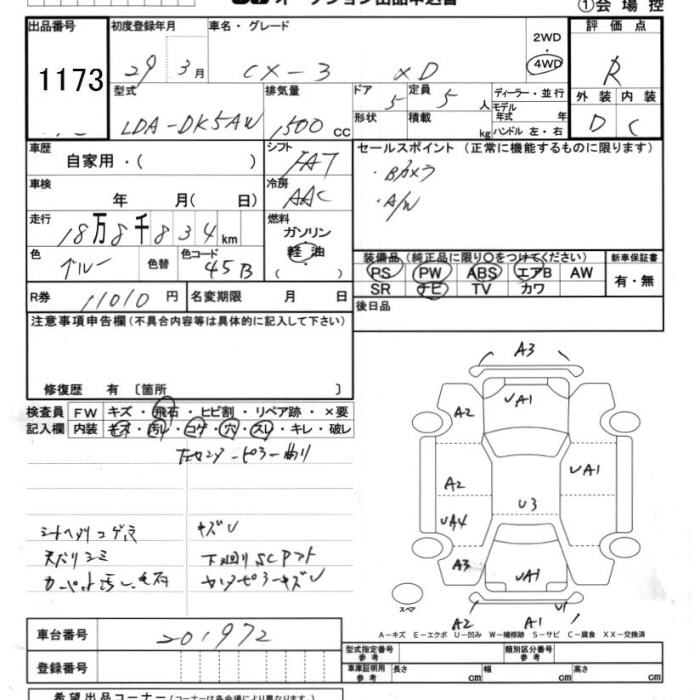 ①会場控
出品番号 1173
初度登録年月 29 3月
車名・グレード CX-3 XD
2WD
4WD
評価点 R
外装 内装
D C
型式 LDA-DK5AW
排気量 1500 CC
ドア 5 定員 5 人
形状 積載 kg
ディーラー・並行
モデル年式 年
ハンドル 左・右
車歴 自家用・( )
シフト FAT
セールスポイント (正常に機能するものに限ります)
・Bカメラ
・A/W
車検 年 月( 日)
冷房 AAC
走行 18万8千834km
燃料 ガソリン
軽油
( ・ )
色 ブルー 色替 色コード 45B
装備品 (純正品に限り○をつけてください) 新車保証書
PS PW ABS エアB AW 有・無
SR ナビ TV カワ
R券 11010円 名変期限 月 日
後日品
注意事項申告欄 (不具合内容等は具体的に記入して下さい)
修復歴 有 〔箇所 〕
検査員 FW キズ・飛石・ヒビ割・リペア跡・×要
記入欄 内装 キズ・汚レ・コゲ・穴・スレ・キレ・破レ
左センターピラー曲り
キズU
天バリシミ
下廻りSCPマト
A3
A2 UA1
A2 UA1
UA4 U3
A3 UA1
スペア
A2 A1 U1
A－キズ E－エクボ U－凹み W－補修跡 S－サビ C－腐食 XX－交換済
車台番号 201972
登録番号
型式指定番号 参考 類別区分番号 参考
車庫証明用 参考 長さ cm 幅 cm 高さ cm
希望出品コーナー (コーナーは各会場により異なります。)